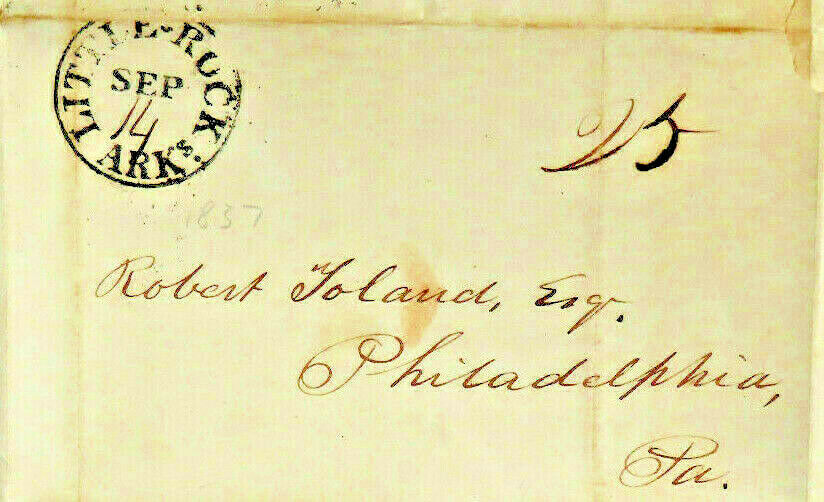 LITTLE-ROCK
SEP
14
ARKs.
25
1837
Robert Toland, Esq.
Philadelphia,
Pa.